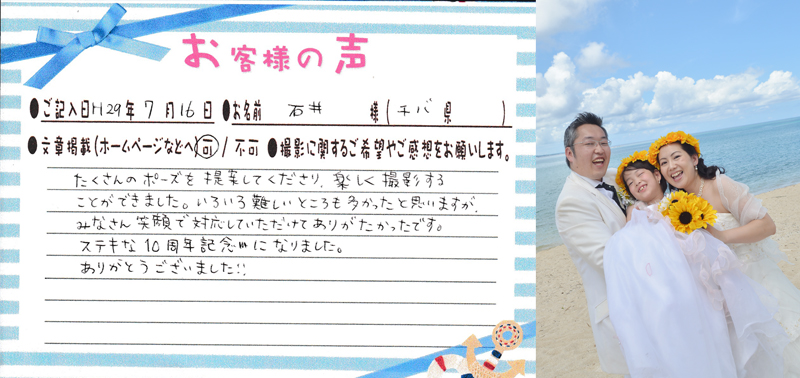 お客様の声
●ご記入日H29年7月16日 ●お名前 石井 様(チバ県 )
●文章掲載(ホームページなどへ)可/不可 ●撮影に関するご希望やご感想をお願いします。
たくさんのポーズを提案してくださり、楽しく撮影する
ことができました。いろいろ難しいところも多かったと思いますが、
みなさん笑顔で対応していただけてありがたかったです。
ステキな10周年記念になりました。
ありがとうございました!!